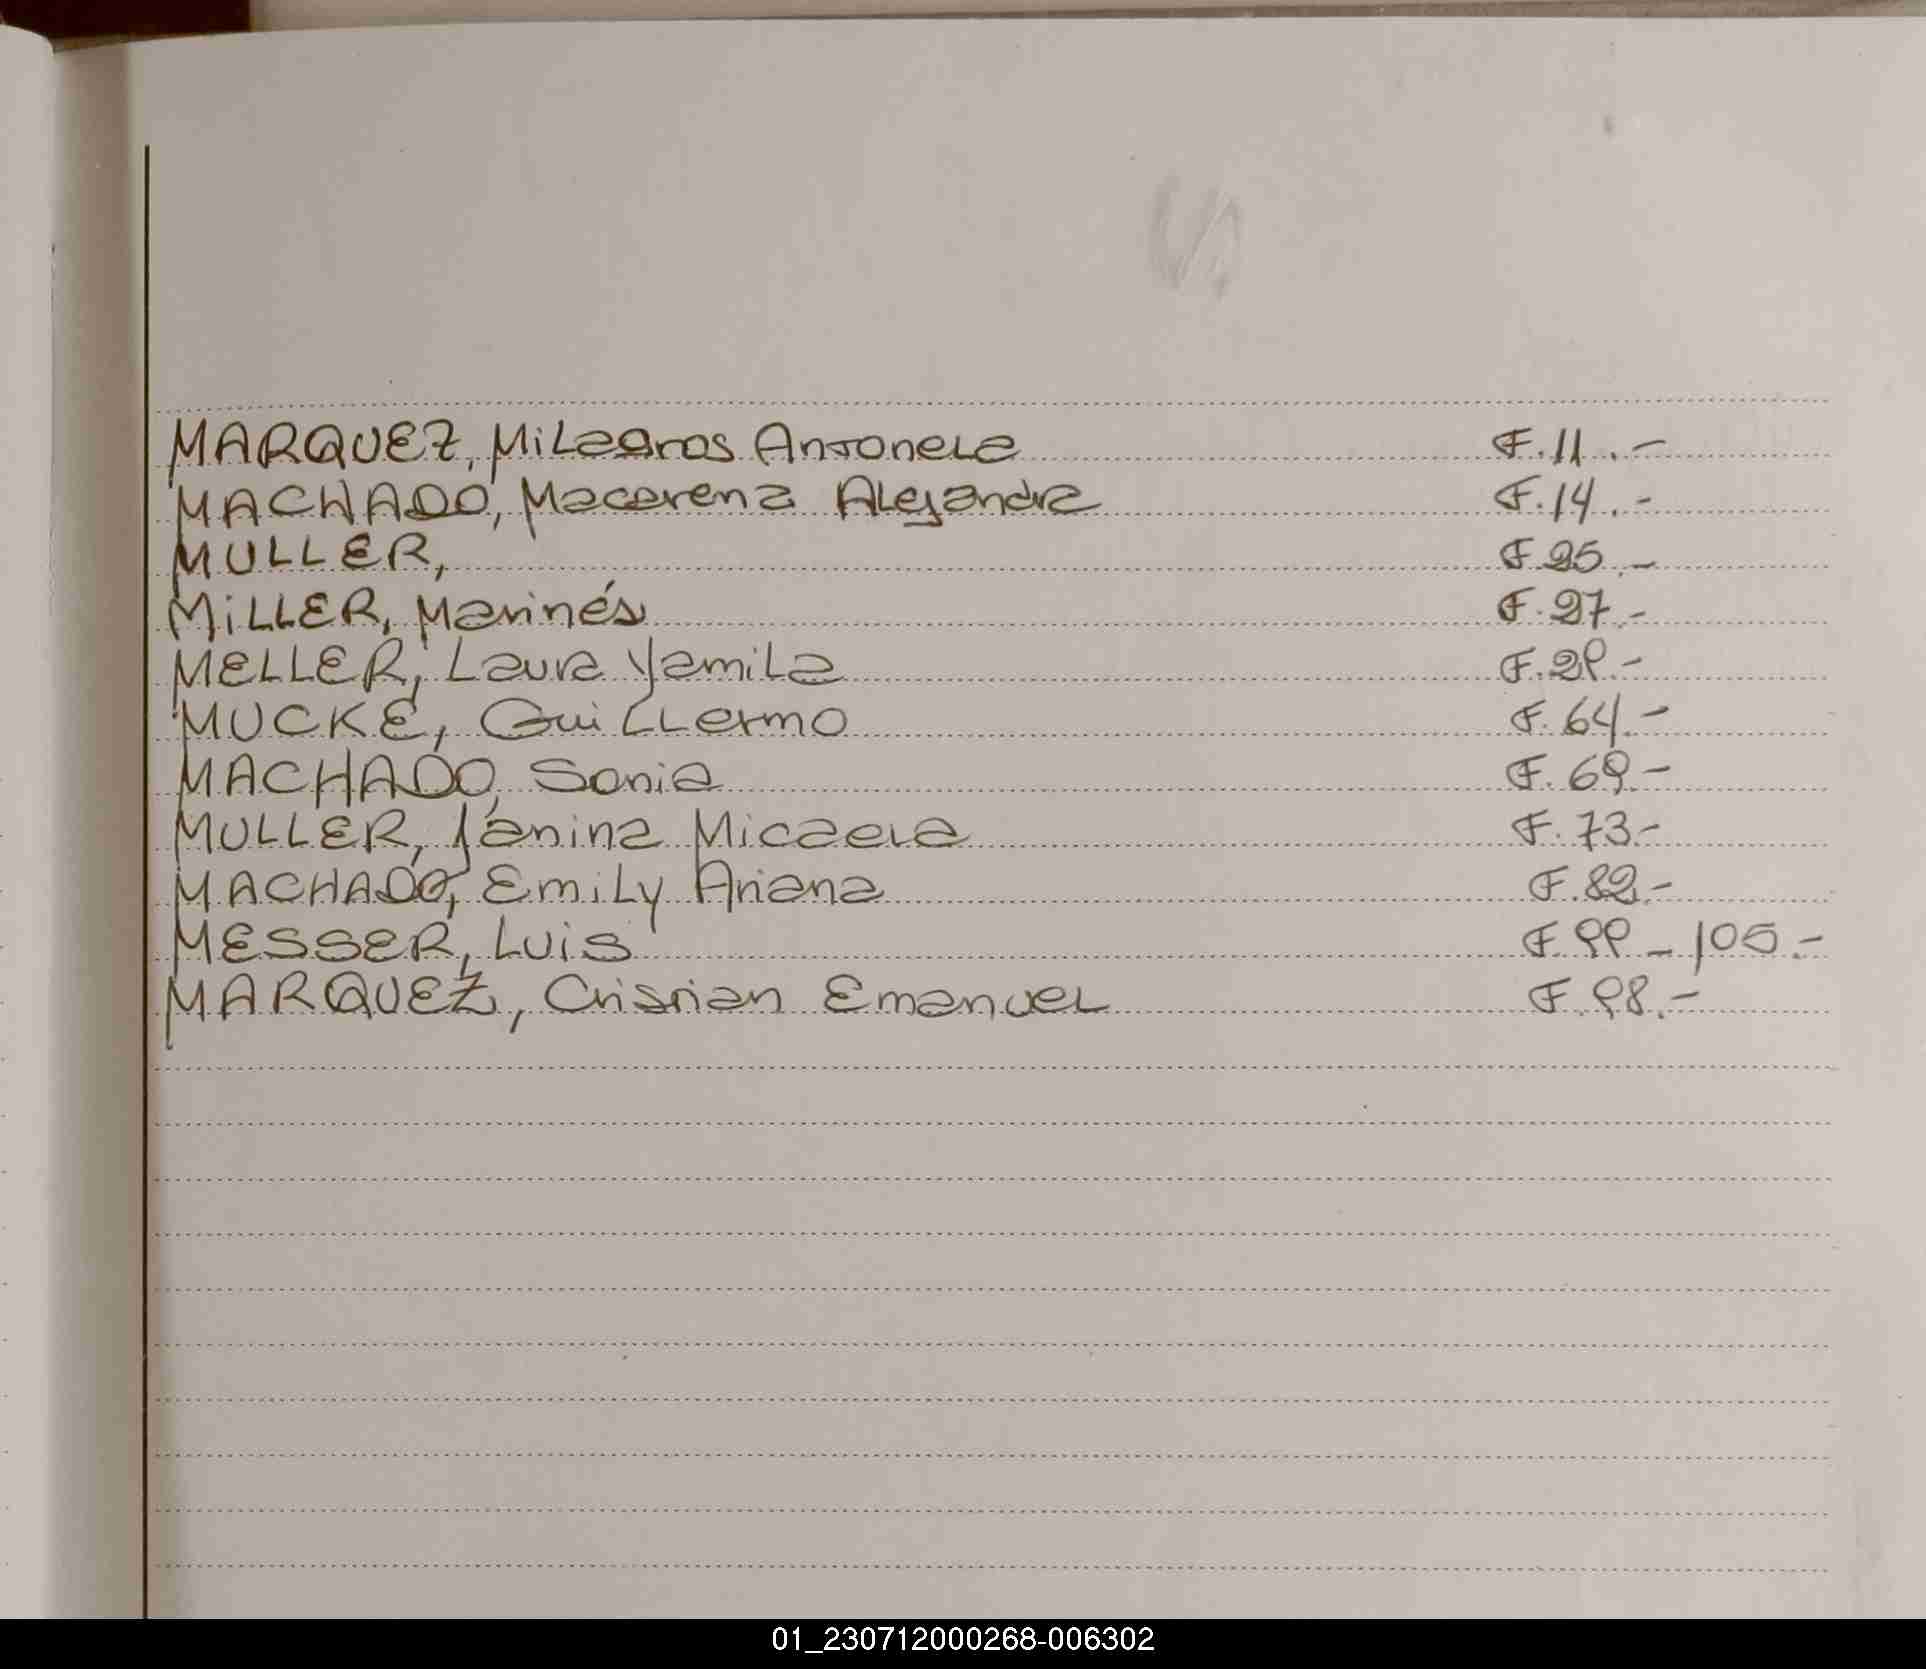 MARQUEZ, Milagros Antonela F.11.-
MACHADO, Macarena Alejandra F.14.-
MULLER, F.25.-
MiLLER, Marinés F.27.-
MELLER, Laura Yamila F.29.-
MUCKE, Guillermo F.64.-
MACHADO, Sonia F.69.-
MULLER, Yanina Micaela F.73.-
MACHADO, Emily Ariana F.82.-
MESSER, Luis F.99-105.-
MARQUEZ, Cristian Emanuel F.98.-
01_230712000268-006302